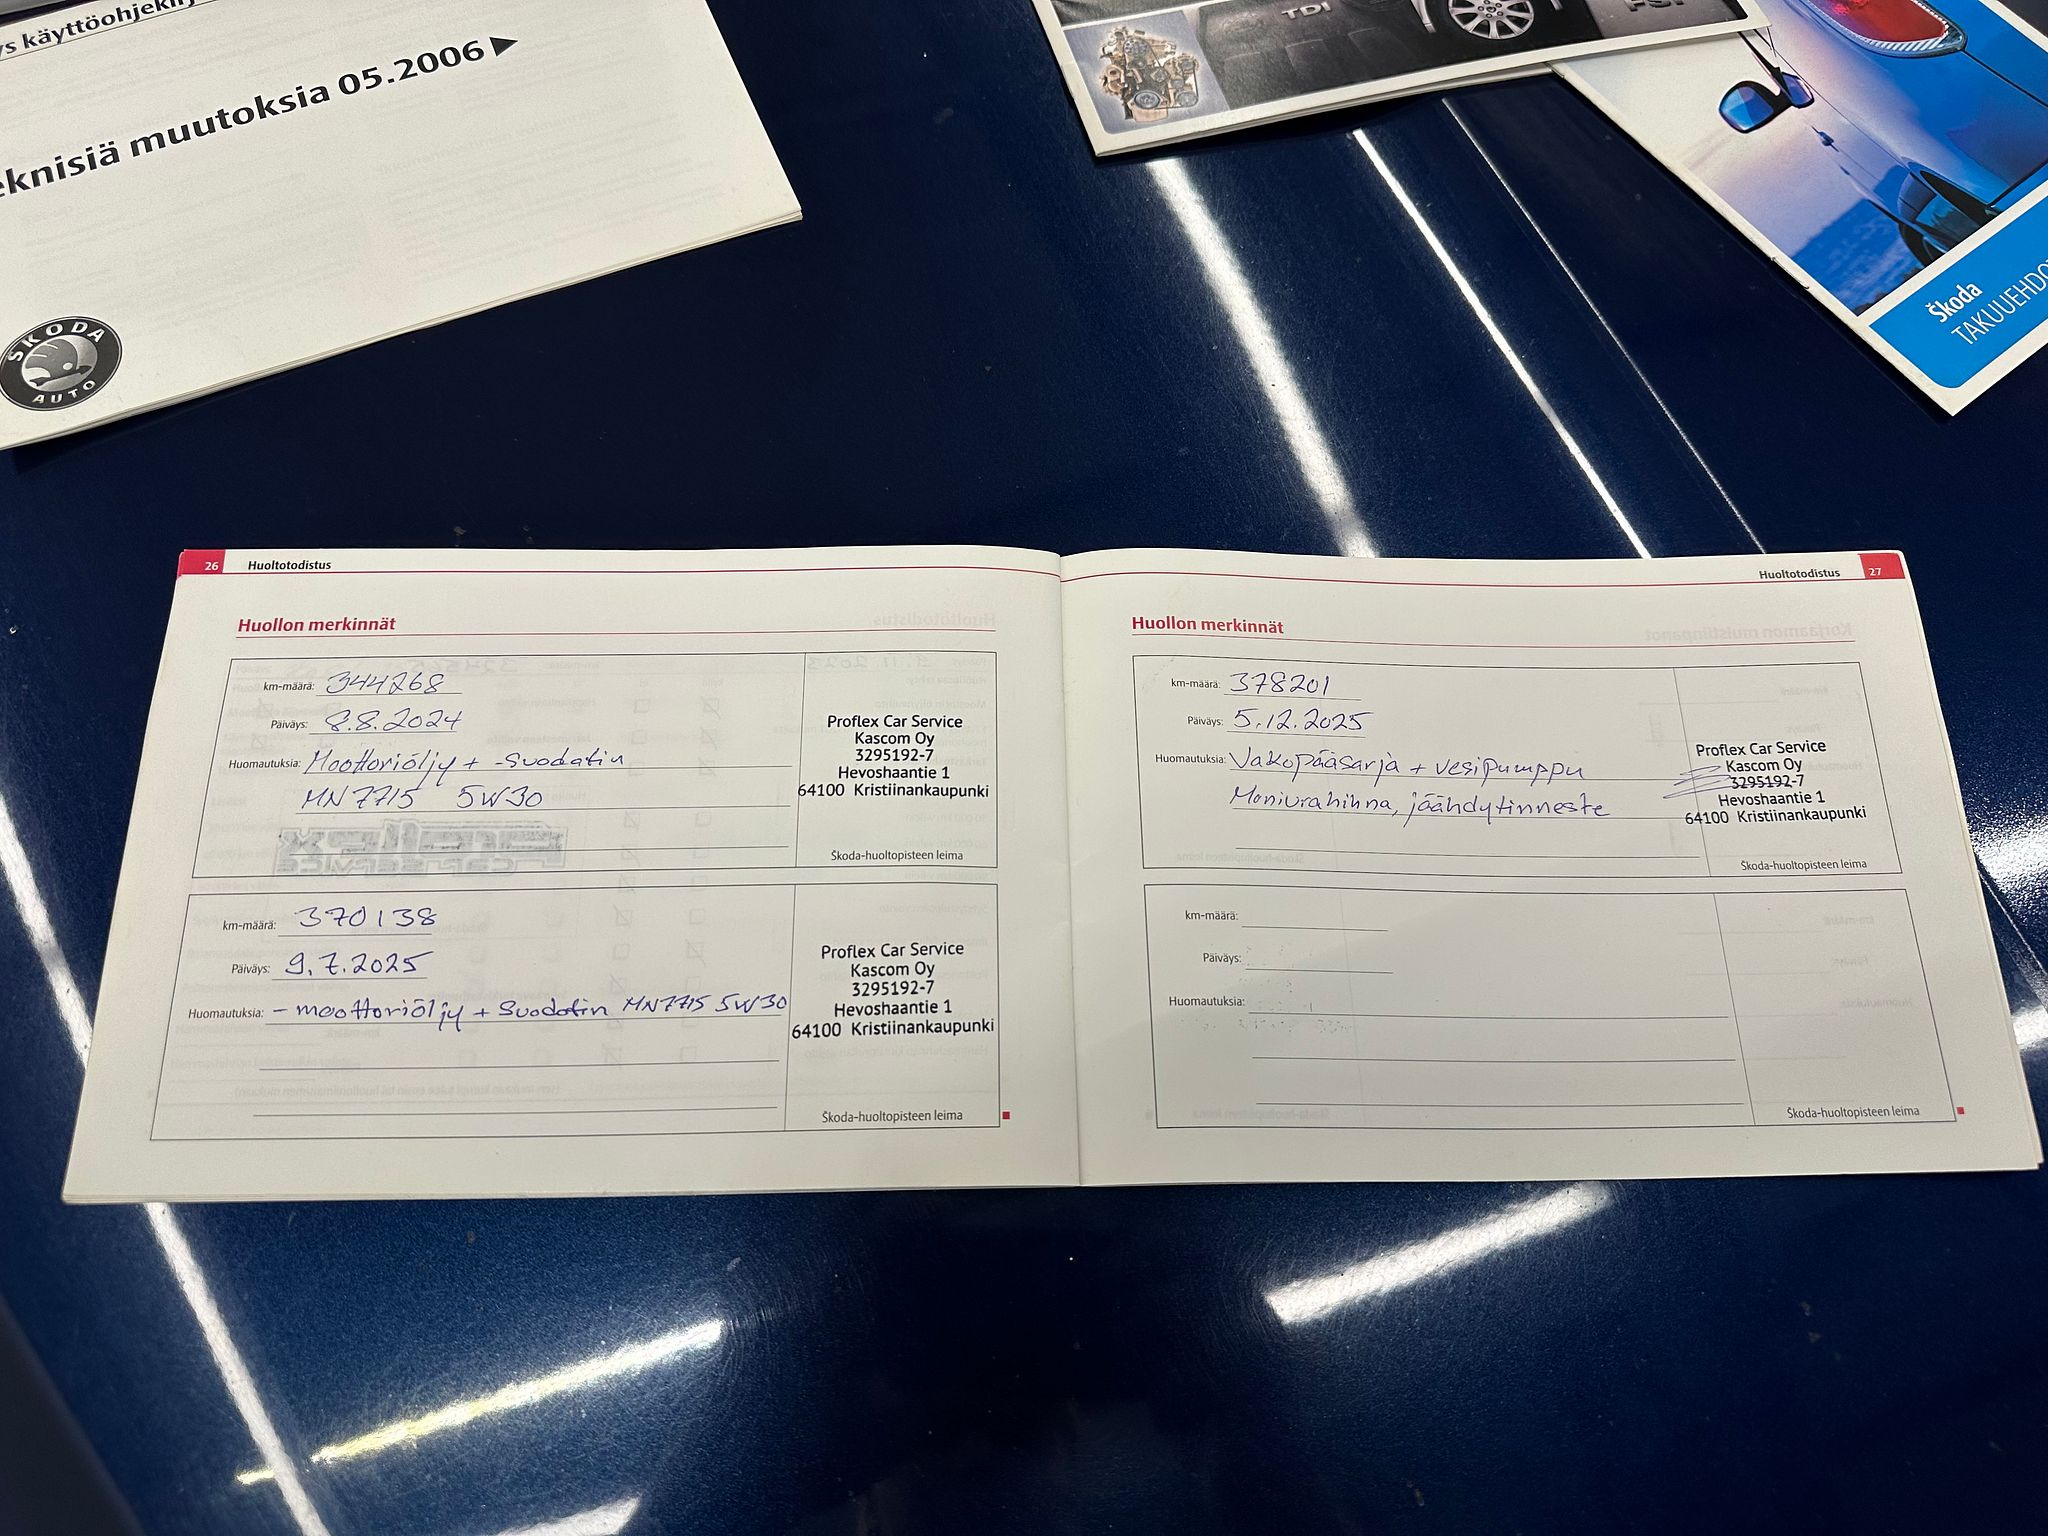 ys käyttöohjekirj
eknisiä muutoksia 05.2006
SKODA
AUTO
TDI
FSI
Škoda
TAKUUEHDO
26 Huoltotodistus
Huollon merkinnät
km-määrä: 344268
Päiväys: 8.8.2024
Huomautuksia: Moottoriöljy + -suodatin
MN7715 5W30
Proflex
CAR SERVICE
Proflex Car Service
Kascom Oy
3295192-7
Hevoshaantie 1
64100 Kristiinankaupunki
Škoda-huoltopisteen leima
km-määrä: 370138
Päiväys: 9.7.2025
Huomautuksia: - moottoriöljy + suodatin MN7715 5W30
Proflex Car Service
Kascom Oy
3295192-7
Hevoshaantie 1
64100 Kristiinankaupunki
Škoda-huoltopisteen leima
Huoltotodistus 27
Huollon merkinnät
km-määrä: 378201
Päiväys: 5.12.2025
Huomautuksia: Jakopääsarja + vesipumppu
Moniurahihna, jäähdytinneste
Proflex Car Service
Kascom Oy
3295192-7
Hevoshaantie 1
64100 Kristiinankaupunki
Škoda-huoltopisteen leima
km-määrä:
Päiväys:
Huomautuksia:
Škoda-huoltopisteen leima